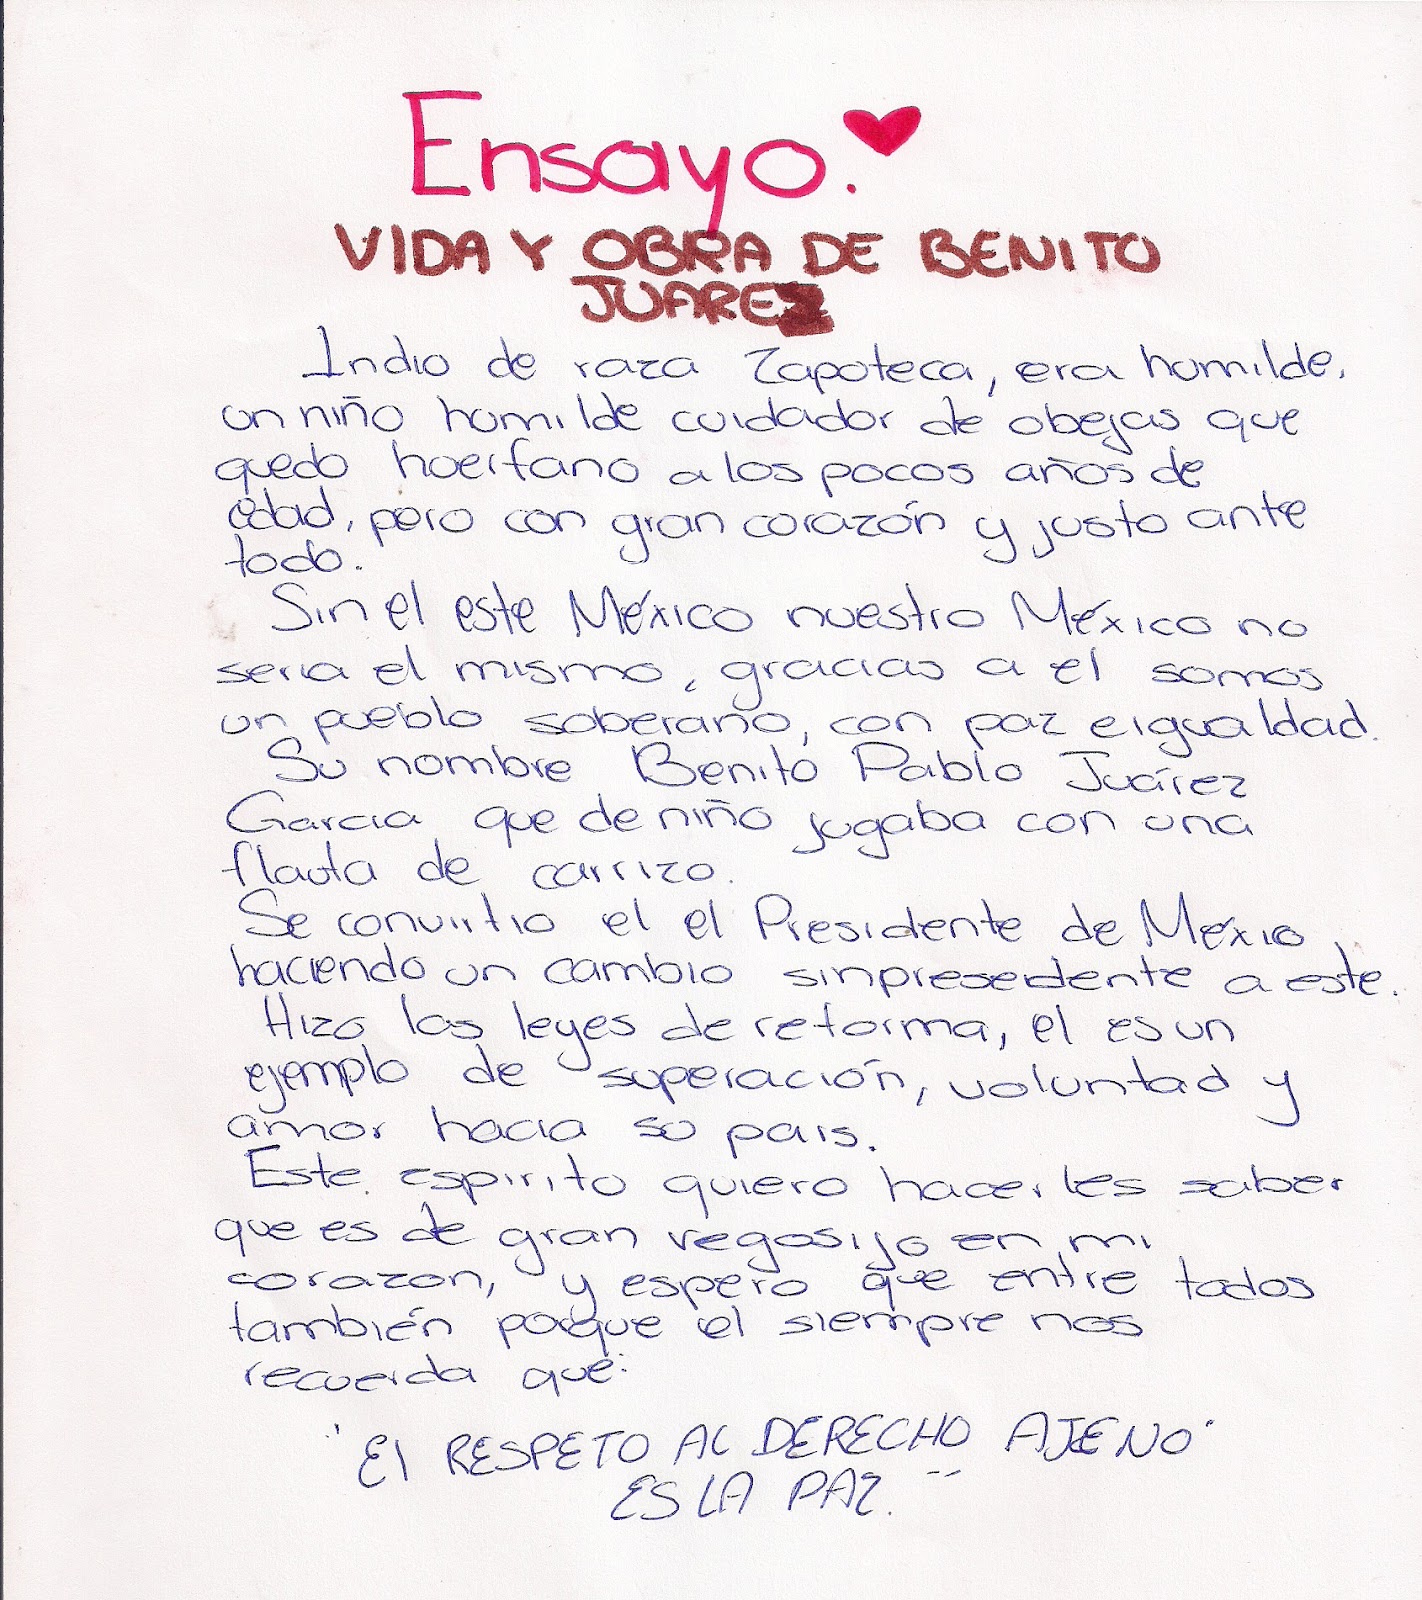 Ensayo.
VIDA Y OBRA DE BENITO
JUAREZ
Indio de raza Zapoteca, era humilde,
un niño humilde cuidador de obejas que
quedo huerfano a los pocos años de
edad, pero con gran corazón y justo ante
todo.
Sin el este México nuestro México no
seria el mismo, gracias a el somos
un pueblo soberano, con paz e igualdad.
Su nombre Benito Pablo Juárez
Garcia que de niño jugaba con una
flauta de carrizo.
Se convirtio el el Presidente de México
haciendo un cambio sinpresedente a este.
Hizo las leyes de reforma, el es un
ejemplo de superación, voluntad y
amor hacia su pais.
Este espirito quiero hacerles saber
que es de gran regosijo en mi
corazon, y espero que entre todos
también porque el siempre nos
recuerda que:
"El RESPETO AL DERECHO AJENO
ES LA PAZ."